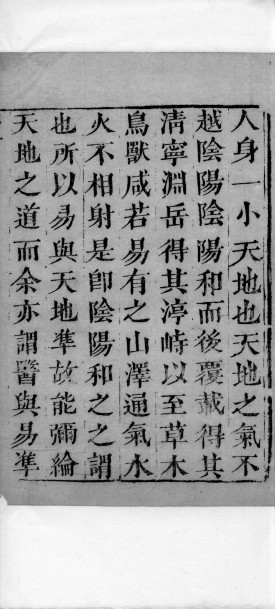 人身一小天地也天地之氣不
越陰陽陰陽和而後覆載得其
清寧淵岳得其渟峙以至草木
鳥獸咸若易有之山澤通氣水
火不相射是卽陰陽和之之謂
也所以易與天地準故能彌綸
天地之道而余亦謂醫與易準